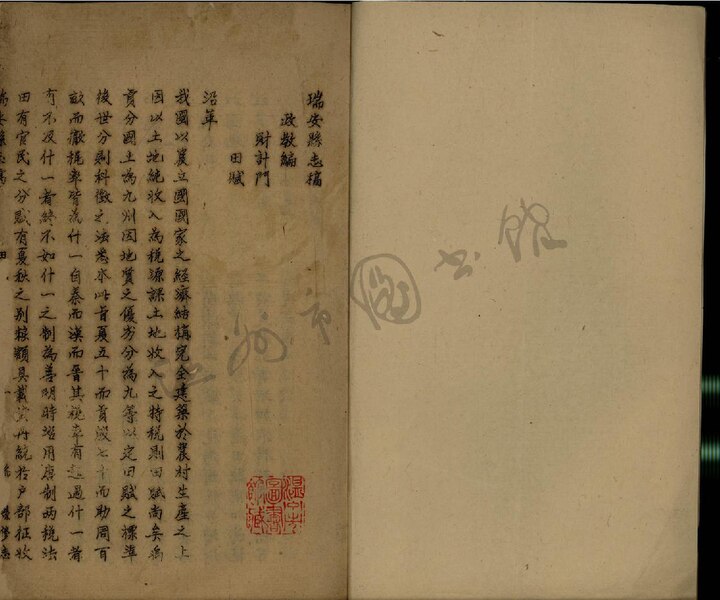 瑞安縣志稿
政教編
財計門
田賦
沿革
我國以農立國國家之經濟結構完全建築於農村生產之上
因以土地純收入為稅源課土地收入之特稅則田賦尚矣禹
貢分國土為九州因地質之優劣分為九等以定田賦之標準
後世分則科徵之法悉本此旨夏五十而貢殷七十而助周百
畝而徹稅率皆為什一自秦而漢而晉其稅率有超過什一者
有不及什一者終不如什一之制為善明時沿用唐制兩稅法
田有官民之分賦有夏秋之別糧類具載黃冊統於戶部征收
瑞安縣志稿 田
溫州市圖書館
溫州市圖書館藏